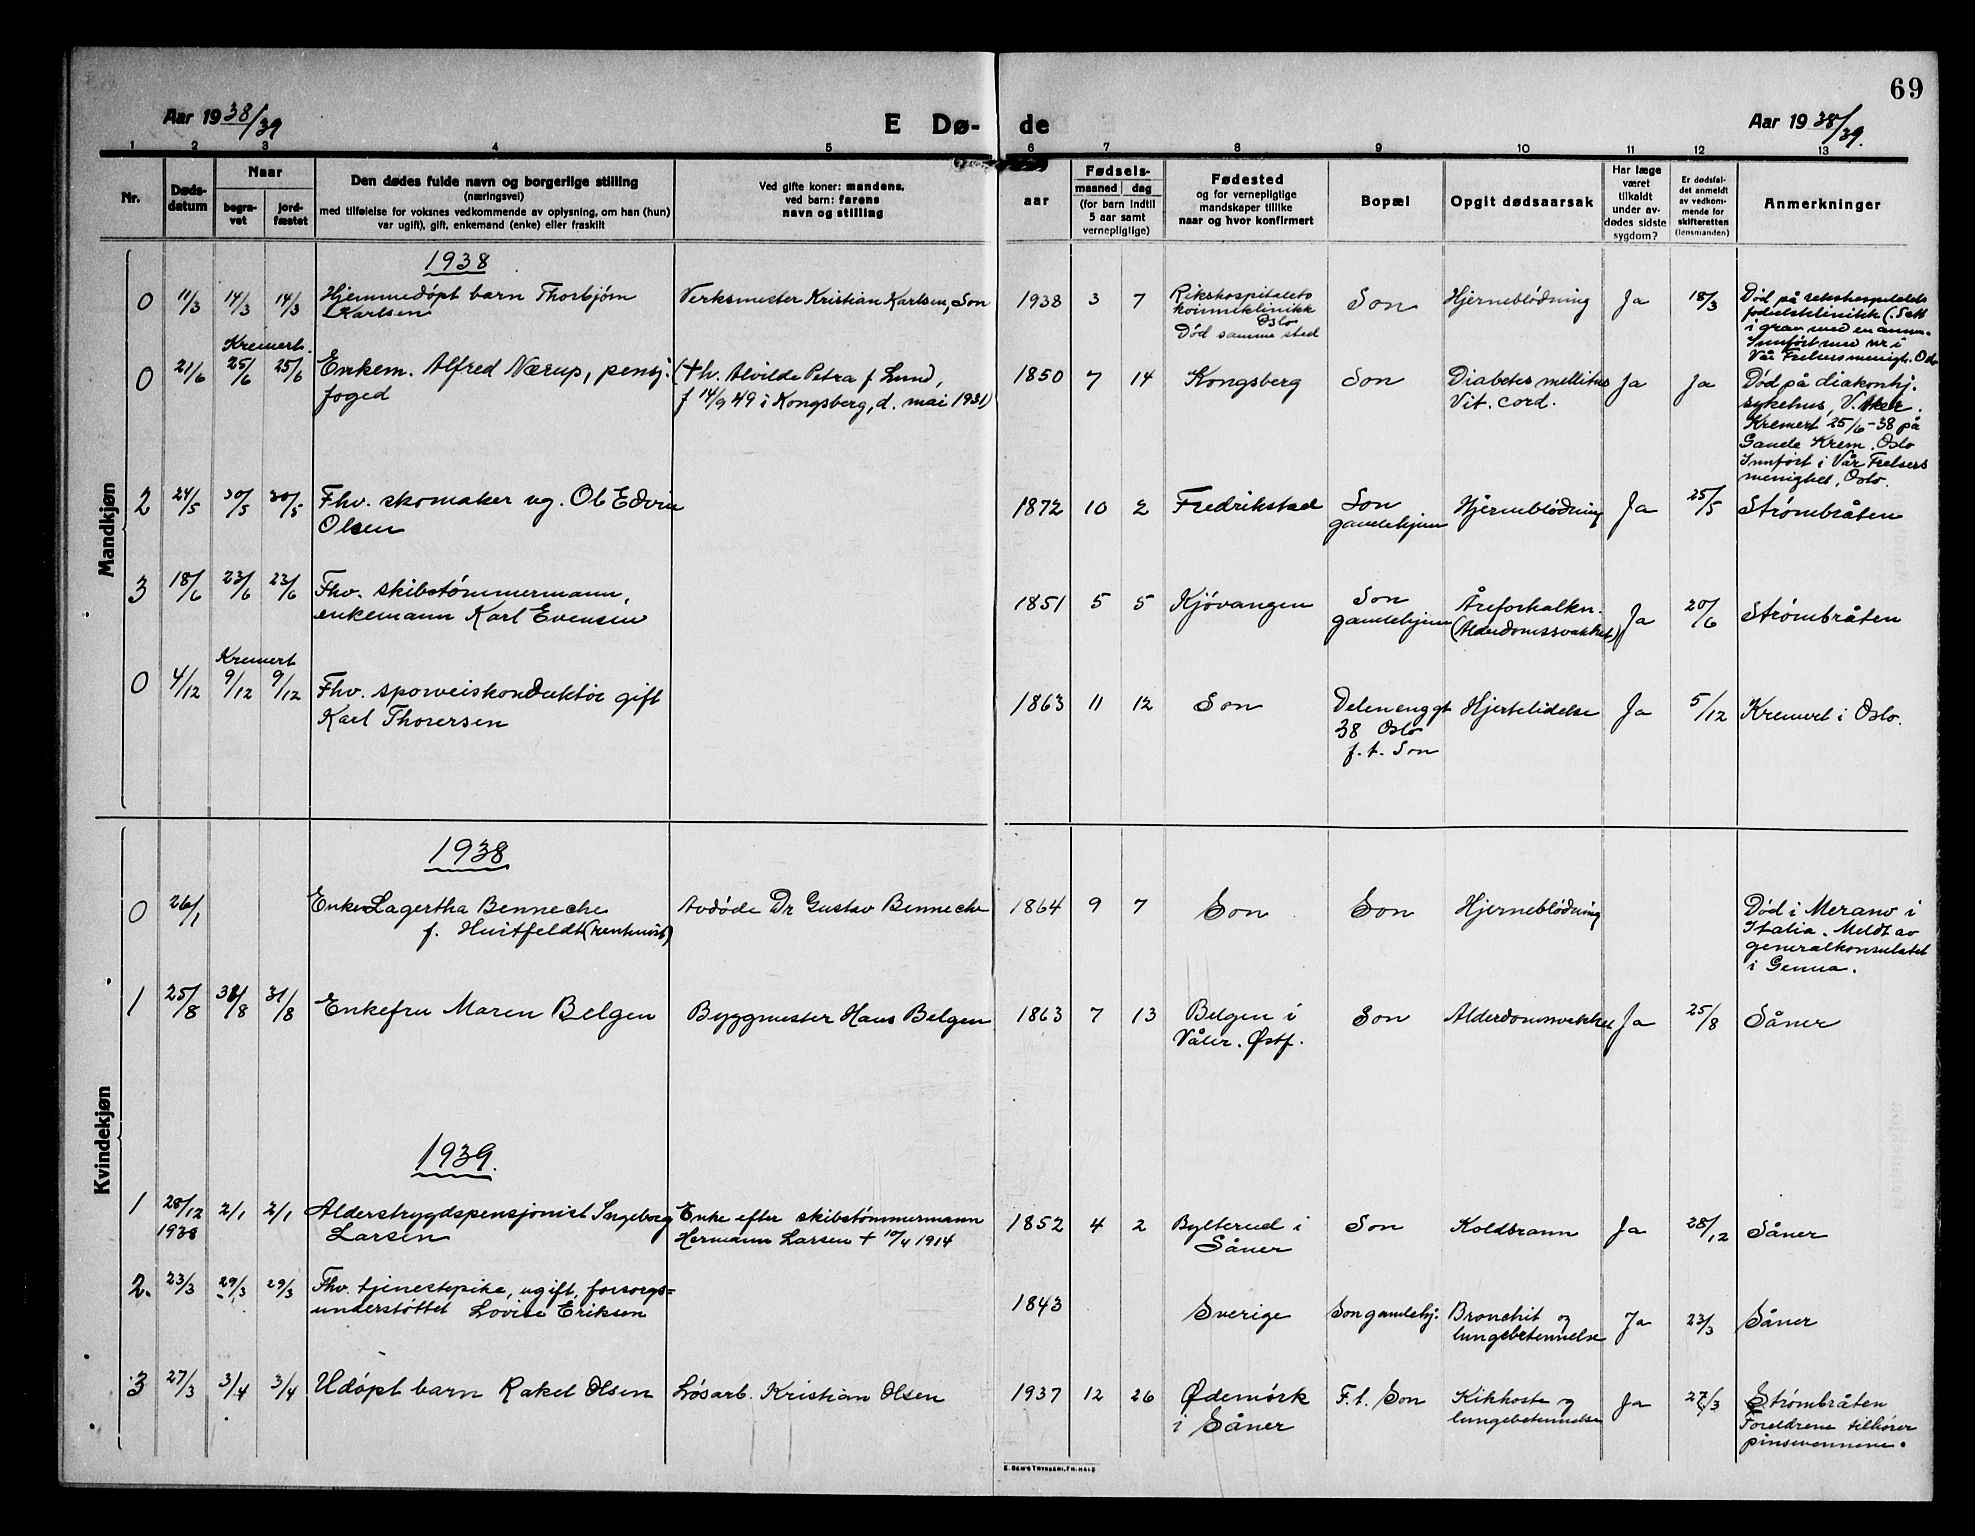 69
Aar 1938/39
E Dø- de
Aar 1938/39.
1 2 3 4 5 6 7 8 9 10 11 12 13
Nr.
Døds-
datum
Naar
begra-
vet
jord-
fæstet
Den dødes fulde navn og borgerlige stilling
(næringsvei)
med tilføielse for voksnes vedkommende av oplysning, om han (hun)
var ugift), gift, enkemand (enke) eller fraskilt
Ved gifte koner: mandens,
ved barn: farens
navn og stilling
Fødsels-
aar
maaned dag
(for barn indtil
5 aar samt
vernepligtige)
Fødested
og for vernepligtige
mandskaper tillike
naar og hvor konfirmert
Bopæl
Opgit dødsaarsak
Har læge
været
tilkaldt
under av-
dødes sidste
sygdom?
Er dødsfal-
det anmeldt
av vedkom-
mende for
skifteretten
(lensmanden)
Anmerkninger
Mandkjøn
1938
0 11/3 14/3 14/3 Hjemmedöpt barn Thorbjørn
Karlsen
Verksmester Kristian Karlsen, Son
1938 3 7
Rikshospitalets
kvinneklinikk
Oslo
Död samme sted
Son
Hjerneblödning
Ja
18/3
Död på rikshospitalets
födselsklinikk (. Satt
i grav med en annen.
Innført med nr i
Vår Frelsers menigt. Oslo
Kremert.
0 21/6 25/6 25/6 Enkem. Alfred Nærup, pensj.
foged
(Th. Alvilde Petra f Lund,
f 14/9 49 i Kongsberg, d. mai 1931)
1850 7 14
Kongsberg
Son
Diabetes mellitus
Vit. cord.
Ja
Ja
Död på diakonhj.
sykehus, V. Aker.
Kremert 25/6-38 på
Gamle Krem. Oslo
Innfört i Vår Frelsers
menighet, Oslo.
2 24/5 30/5 30/5 Fhv. skomaker ug. Ole Edvin
Olsen
1872 10 2
Fredrikstad
Son
gamlehjem
Hjerneblödning
Ja
25/5
Strømbråten
3 18/6 23/6 23/6 Fhv. skibstömmermann,
enkemann Karl Evensen
1851 5 5
Kjövangen
Son
gamlehjem
Åreforkalkn.
(Alderdomssvakhet)
Ja
20/6
Strømbråten
Kremert
0 4/12 9/12 9/12 Fhv. sporveiskonduktör gift
Karl Thoresen
1863 11 12
Son
Delenenggt
38 Oslo
f. t. Son
Hjertelidelse
Ja
5/12
Kremert i Oslo.
Kvindekjøn
1938
0 26/1 Enke Lagertha Benneche
f. Huitfeldt (rentenist)
Avdøde Dr Gustav Benneche
1864 9 7
Son
Son
Hjerneblödning
Död i Merano i
Italia. Meldt av
generalkonsulatet
i Genua.
1 25/8 31/8 31/8 Enkefru Maren Belgen
Byggmester Hans Belgen
1863 7 13
Belgen i
Våler. Østf.
Son
Alderdomsvekket
Ja
25/8
Såner
1939.
1 28/12 1938 2/1 2/1 Alderstrygdspensjonist Ingeborg
Larsen
Enke efter skibstömmermann
Hermann Larsen + 10/4 1914
1852 4 2
Bylterud i
Såner
Son
Koldbrann
Ja
28/12
Såner
2. 23/3 29/3 29/3 Fhv. tjenestepike, ugift, forsorgs=
understöttet Lovise Eriksen
1843
Sverige
Son gamlehj.
Bronchit og
lungebetennelse
Ja
23/3
Såner
3 27/3 3/4 3/4 Udöpt barn Rakel Olsen
Løsarb. Kristian Olsen
1937 12 26
Ødemörk
i Såner
F. t. Son
Kikhoste og
lungebetennelse
Ja
27/3
Strømbråten
Foreldrene tilhører
pinsevennene.
E. SEM'S TRYKKERI, FR.HALD